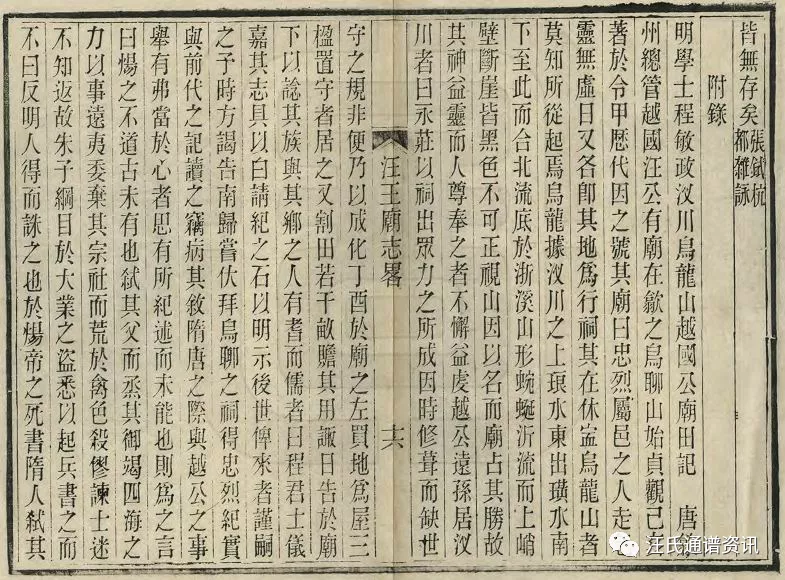 皆無存矣張鉽杭
都雜詠
附錄
明學士程敏政汊川烏龍山越國公廟田記　唐
州總管越國汪公有廟在歙之烏聊山始貞觀己
著於令甲歷代因之號其廟曰忠烈屬邑之人走
靈無虛日又各卽其地為行祠其在休寍烏龍山者
莫知所從起焉烏龍據汊川之上琅水東出璜水南
下至此而合北流底於浙溪山形蜿蜒沂流而上峭
壁斷崖皆黑色不可正視山因以名而廟占其勝故
其神益靈而人尊奉之者不懈益虔越公遠孫居汊
川者曰永莊以祠出眾力之所成因時修葺而缺世
汪王廟志畧　十六
守之規非便乃以成化丁酉於廟之左買地為屋三
楹置守者居之又割田若干畝贍其用諏日告於廟
下以諗其族與其鄉之人有耆而儒者曰程君士儀
嘉其志具以白請紀之石以明示後世俾來者謹嗣
之予時方謁告南歸嘗伏拜烏聊之祠得忠烈紀實
與前代之記讀之竊病其敘隋唐之際與越公之事
舉有弗當於心者思有所紀述而未能也則為之言
曰煬之不道古未有也弒其父而烝其御竭四海之
力以事遠夷委棄其宗社而荒於禽色殺僇諫士迷
不知返故朱子綱目於大業之盜悉以起兵書之而
不曰反明人得而誅之也於煬帝之死書隋人弒其
汪氏通谱资讯